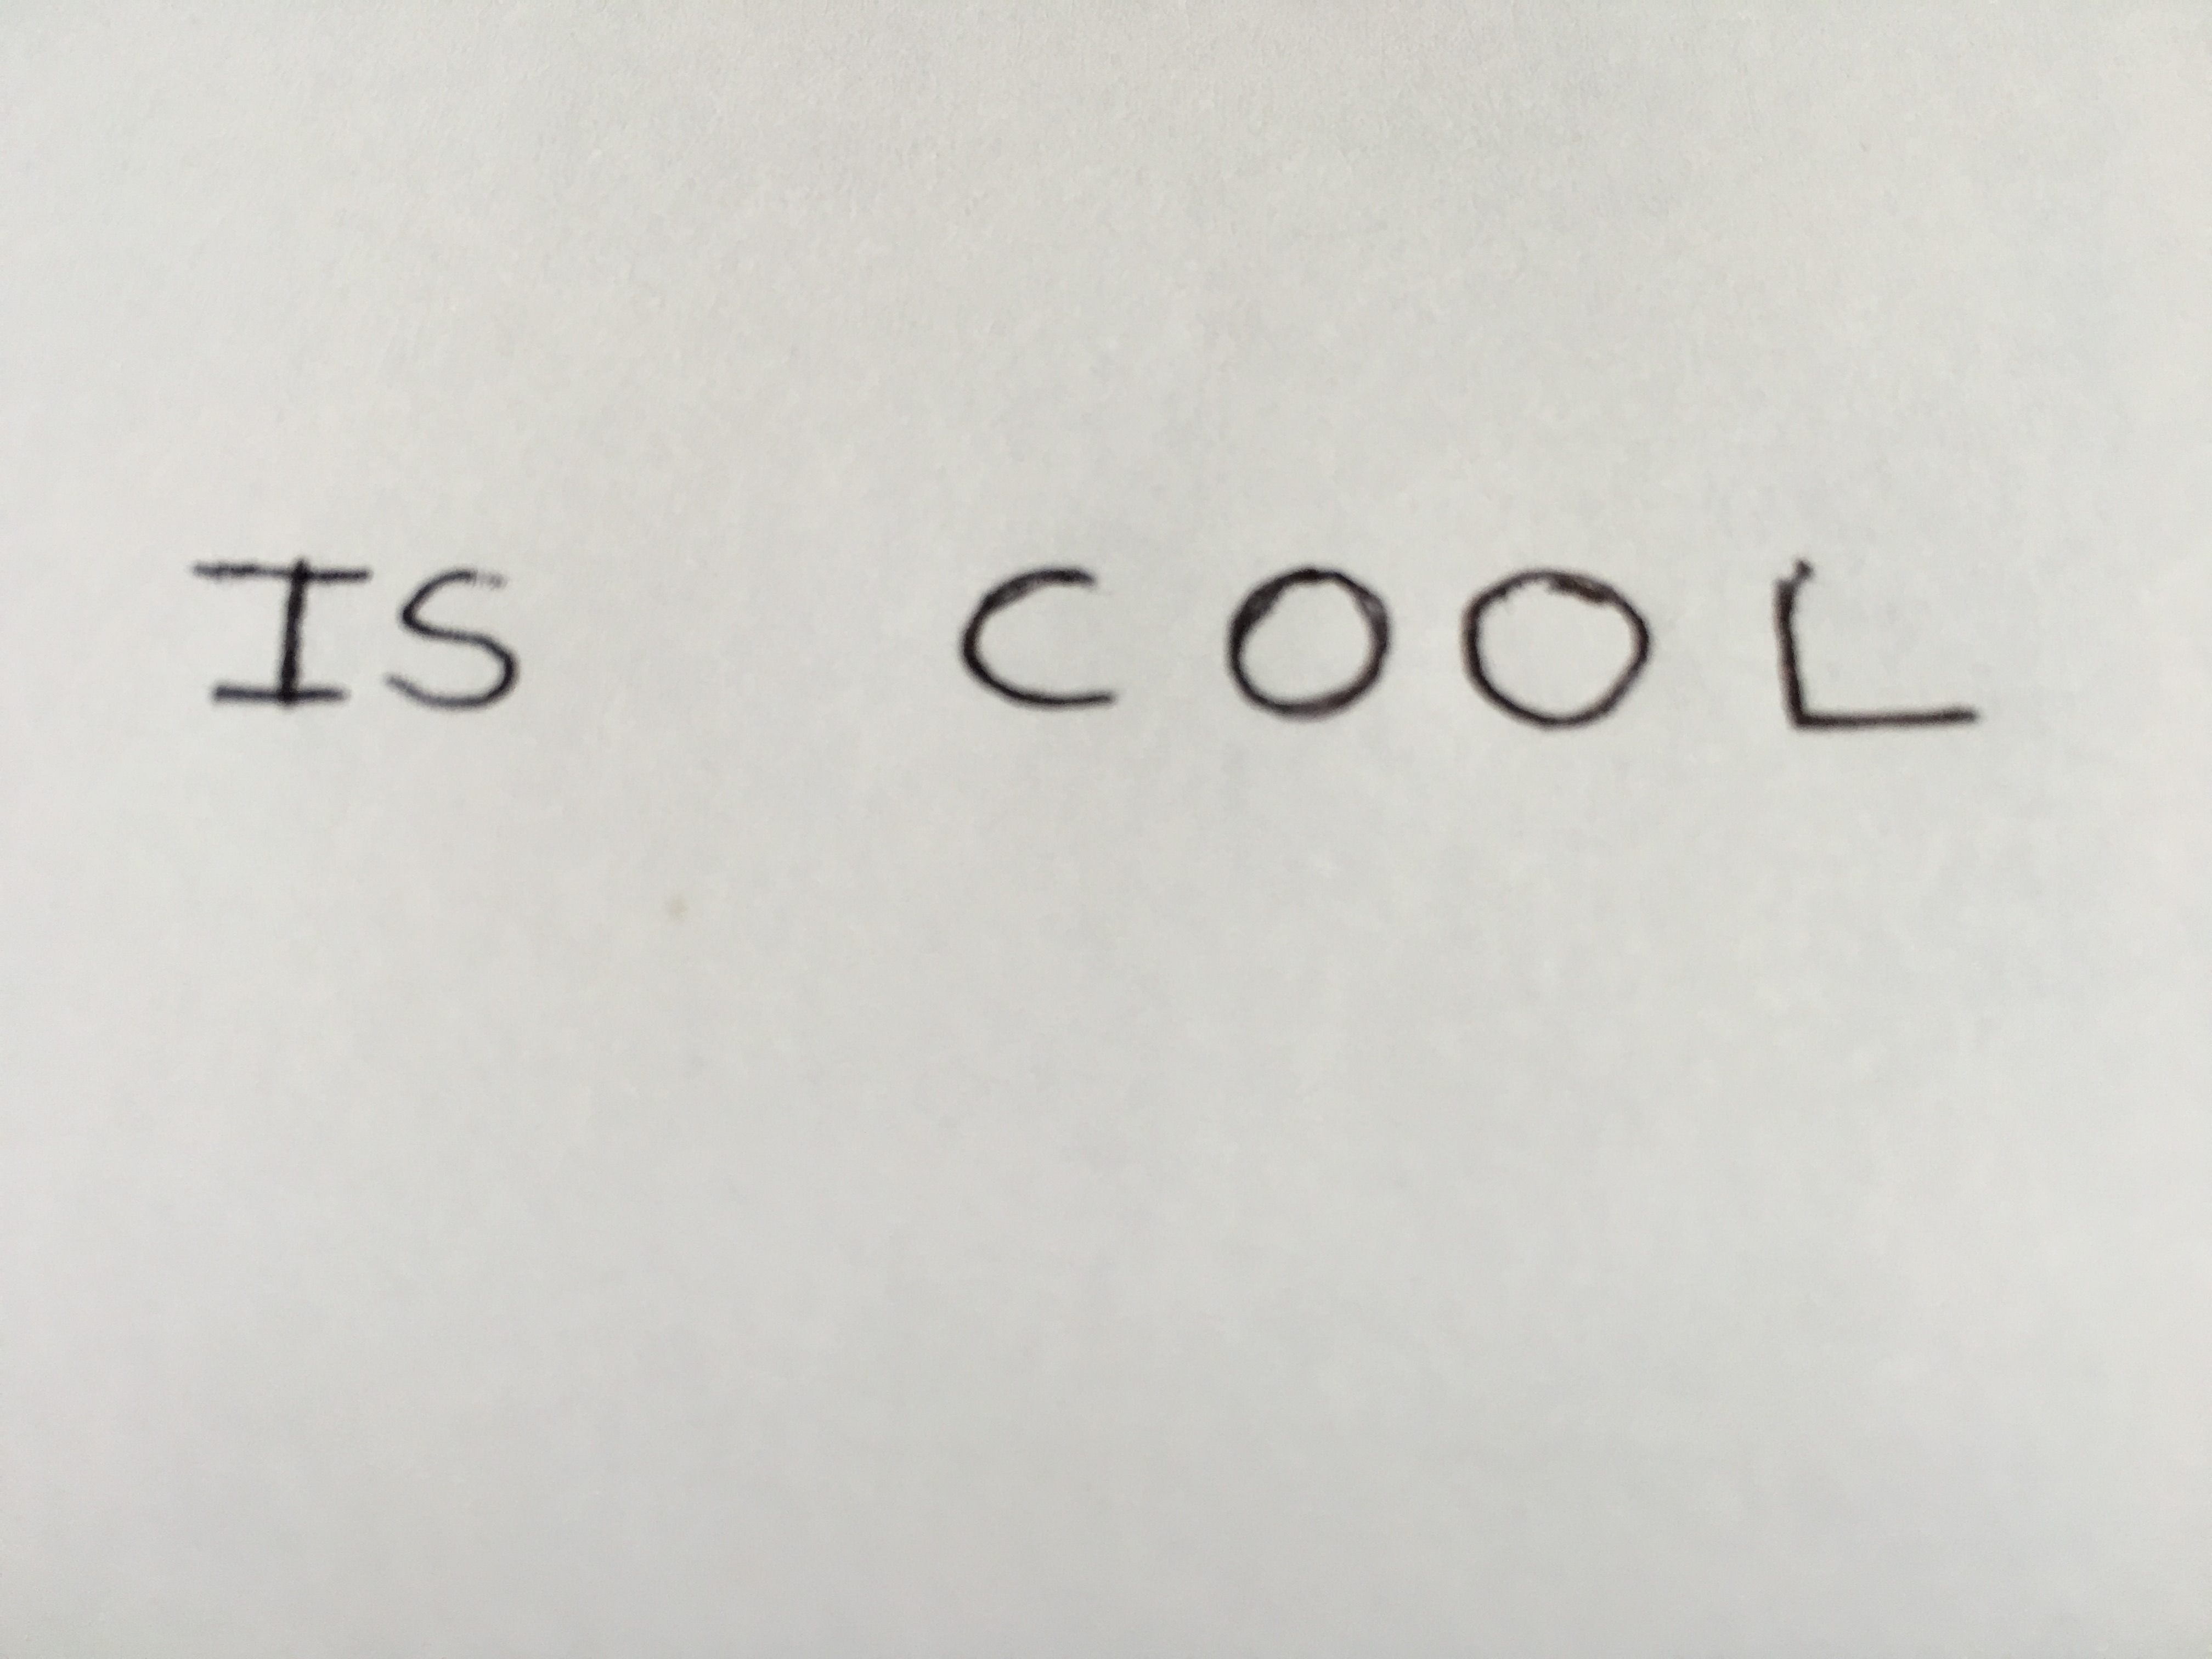 IS COOL